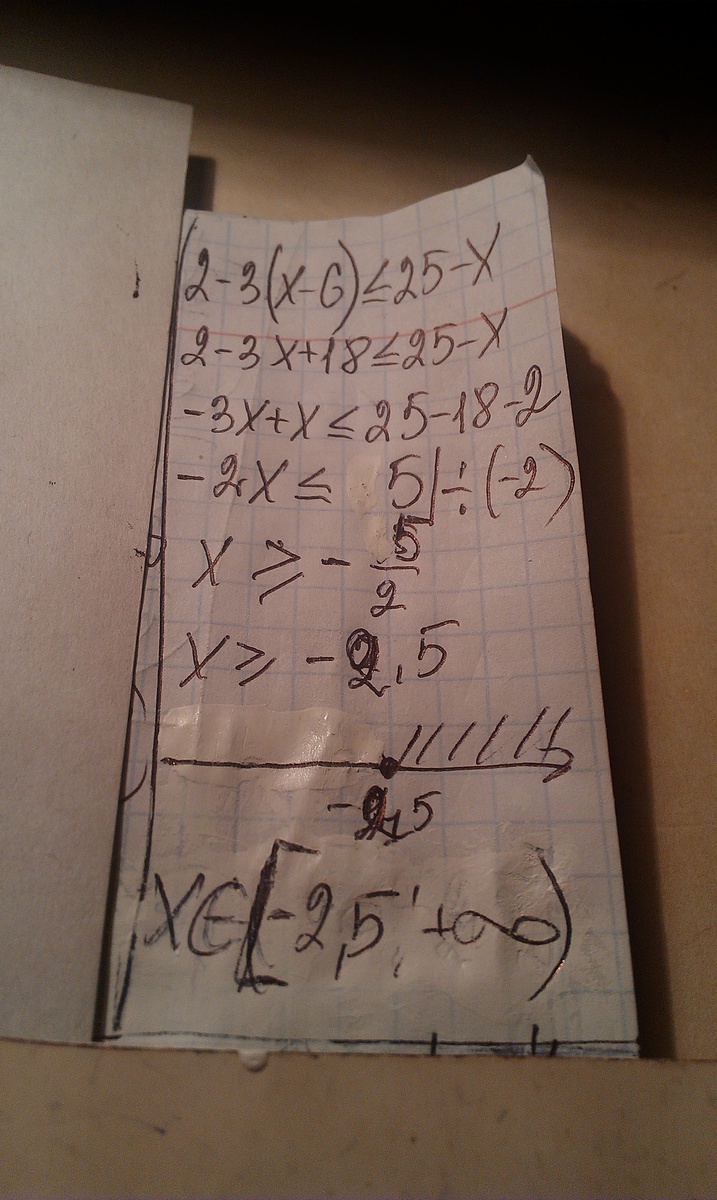 (2-3(x-6)≤25-x
2-3x+18≤25-x
-3x+x≤25-18-2
-2x≤ 5|÷(-2)
x ≥ -5/2
x ≥ -2,5
-2,5
x∈[-2,5; +∞)